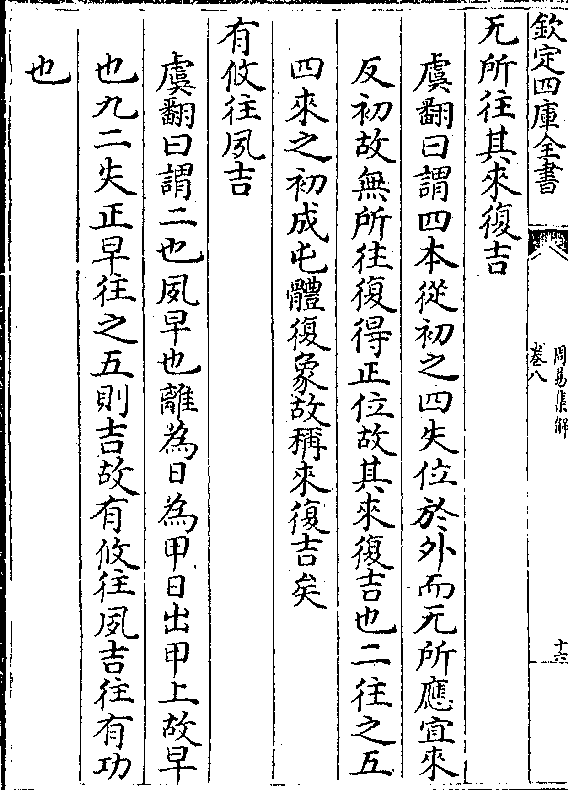 欽定四庫全書
周易集解
卷八
十六
无所往其來復吉
虞翻曰謂四本從初之四失位於外而无所應宜來
反初故無所往復得正位故其來復吉也二往之五
四來之初成屯體復象故稱來復吉矣
有攸往夙吉
虞翻曰謂二也夙早也離為日為甲日出甲上故早
也九二失正早往之五則吉故有攸往夙吉往有功
也